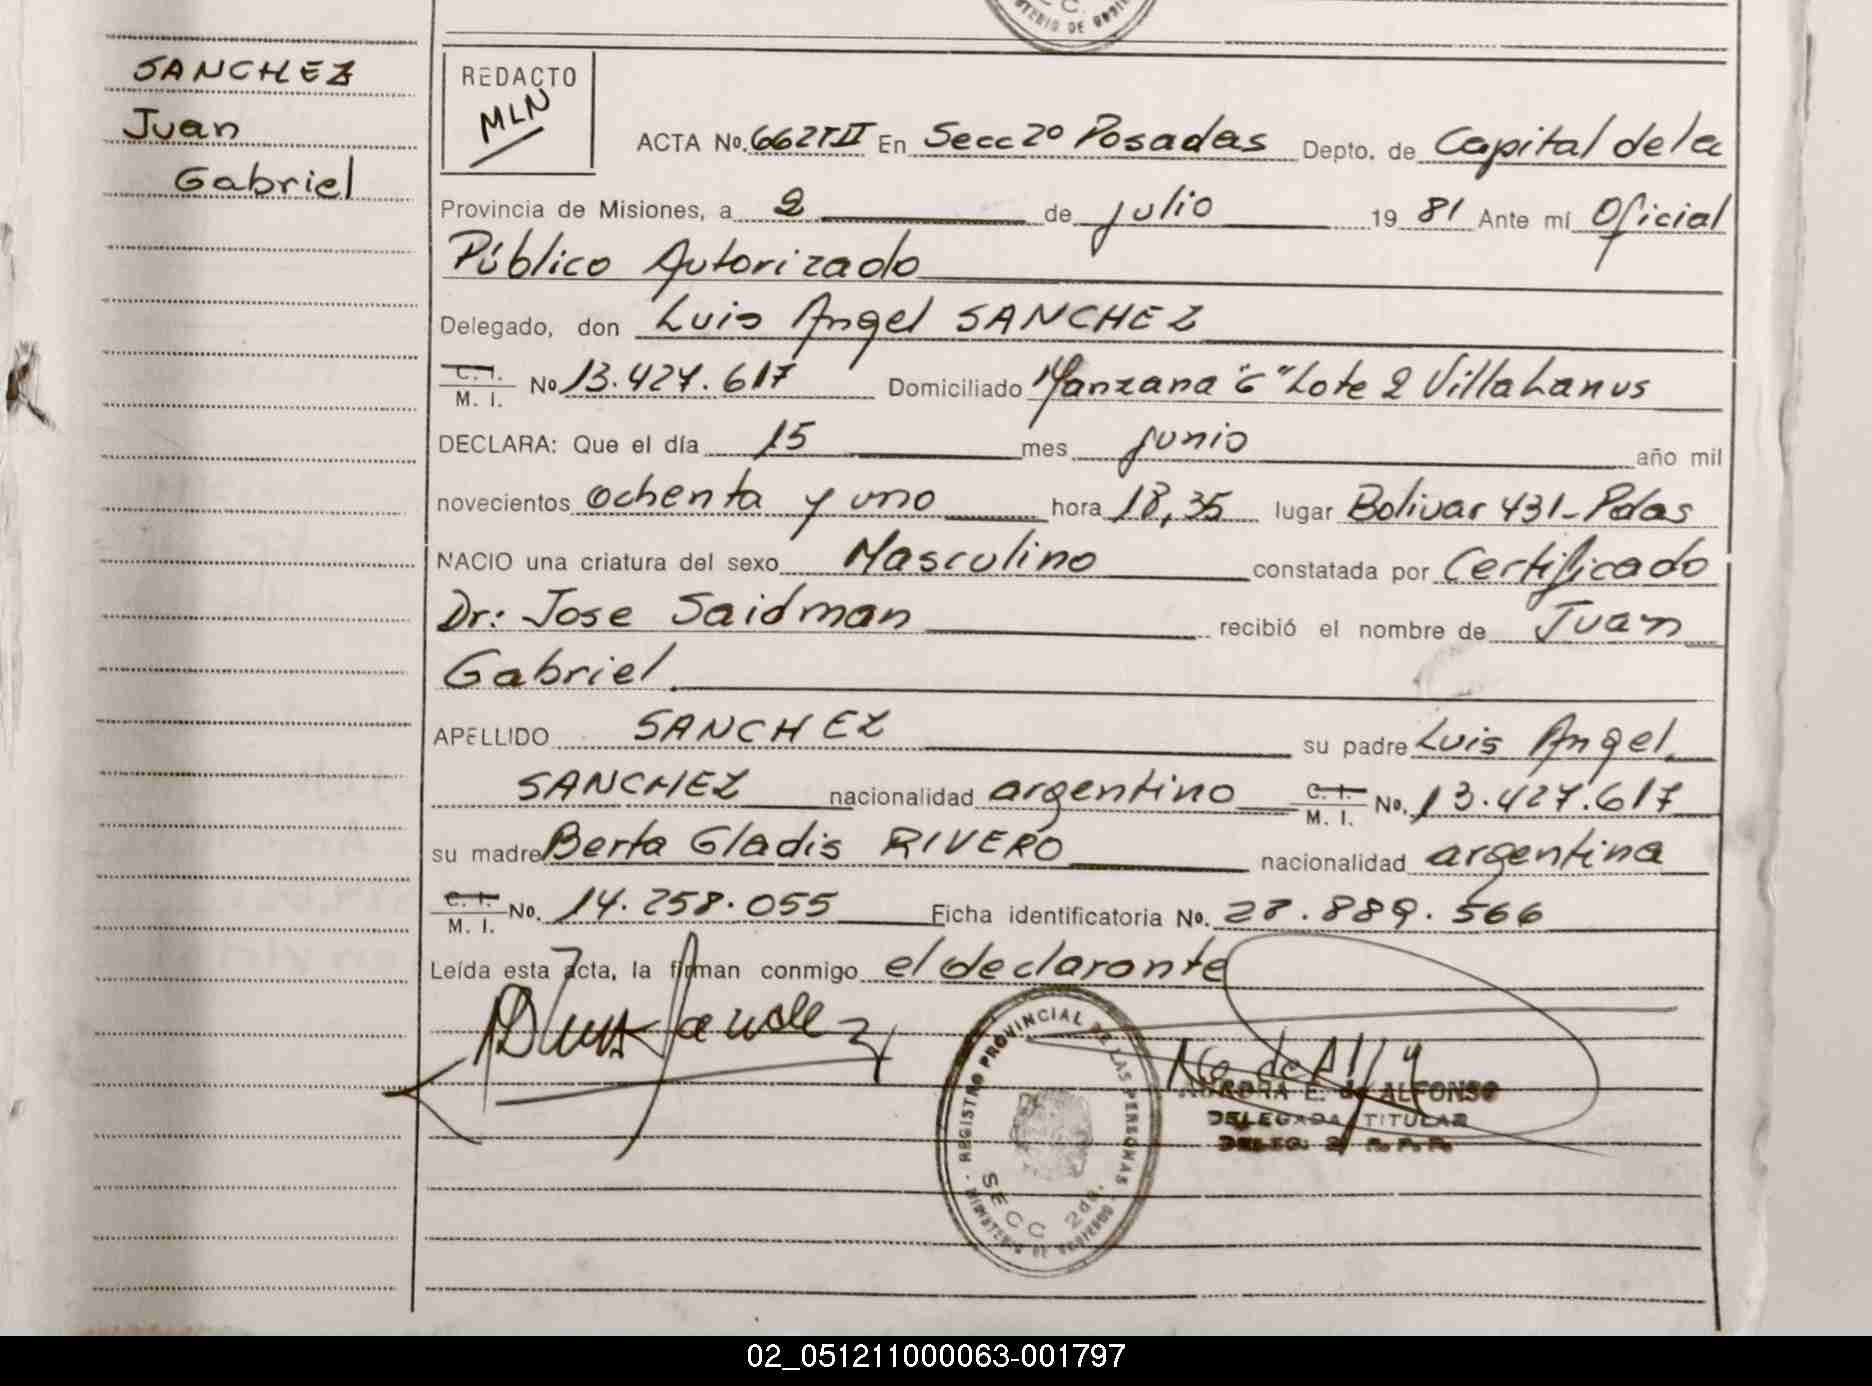 SANCHEZ
Juan
Gabriel
REDACTO
MLN
ACTA No. 662TII En Secc 2º Posadas Depto. de Capital de la
Provincia de Misiones, a 2 de julio 19 81 Ante mí Oficial
Público Autorizado
Delegado, don Luis Angel SANCHEZ
C. I.
M. I. No 13.427.617 Domiciliado Manzana "G" Lote 2 Villa Lanus
DECLARA: Que el día 15 mes junio año mil
novecientos ochenta y uno hora 18,35 lugar Bolivar 431-Pdas
NACIO una criatura del sexo Masculino constatada por Certificado
Dr: Jose Saidman recibió el nombre de Juan
Gabriel
APELLIDO SANCHEZ su padre Luis Angel
SANCHEZ nacionalidad argentino C. I. M. I. No. 13.427.617
su madre Berta Gladis RIVERO nacionalidad argentina
C. I.
M. I. No. 14.258.055 Ficha identificatoria No. 28.889.566
Leída esta acta, la firman conmigo el declarante
REGISTRO PROVINCIAL DE LAS PERSONAS
SECC 2da.
MINISTERIO DE GOBIERNO
E. de ALFONSO
DELEGADA TITULAR
DELEG. 2 R.P.P.
02_051211000063-001797